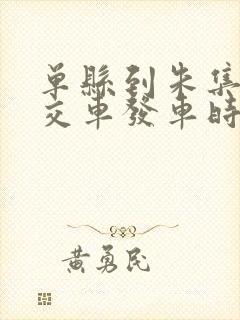 单縣到朱集
交車發車時
黄勇民